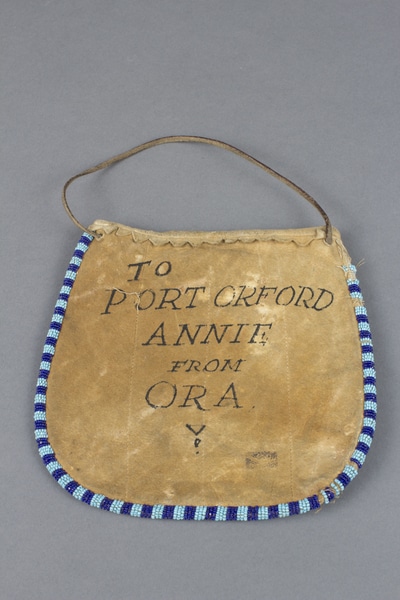 TO
PORT ORFORD
ANNIE
FROM
ORA.